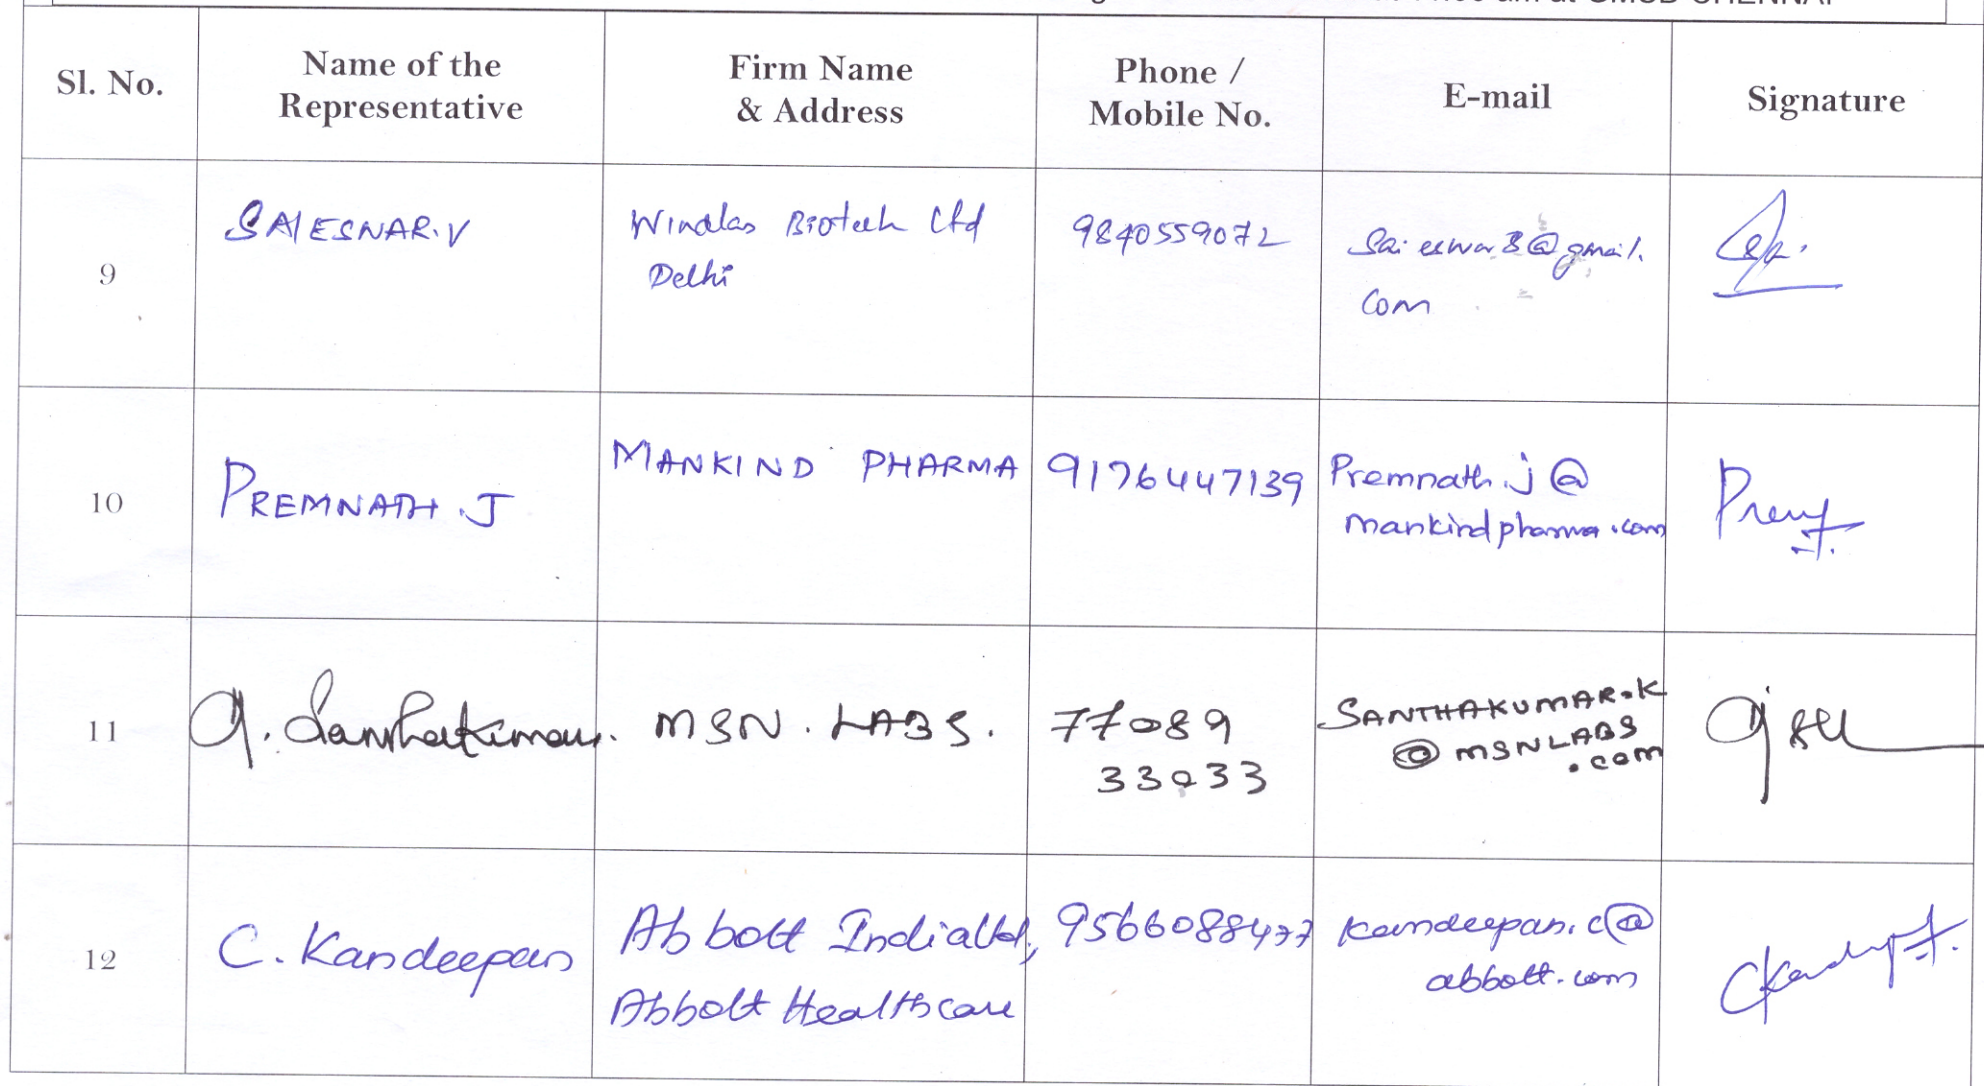 at GMSD CHENNAI
Sl. No.
Name of the
Representative
Firm Name
& Address
Phone /
Mobile No.
E-mail
Signature
9
SAIESWAR.V
Windlas Biotech Ltd
Delhi
9840559072
Sai eswar8@gmail.
Com
10
PREMNATH.J
MANKIND PHARMA
9176447139
Premnath.j@
mankindpharma.com
Prem
J.
11
G. Santhakumar.
MSN. LABS.
77089
33033
SANTHAKUMAR.K
@MSNLABS
.com
12
C. Kandeepan
Abbott India Ltd,
Abbott Healthcare
9566088477
kandeepan.c@
abbott.com